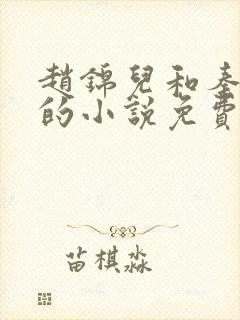 趙錦兒和秦
的小說免費
苗棋淼